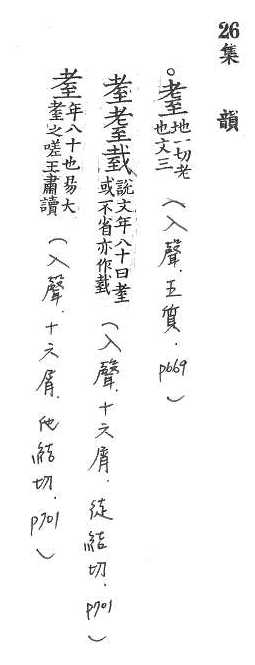 26集 韻
。耋地一切老也文三(入聲.五質.p669)
耊耋臷說文年八十曰耊或不省亦作臷(入聲.十六屑.徒結切.p701)
耊年八十也易大耊之嗟王肅讀(入聲.十六屑.他結切.p701)